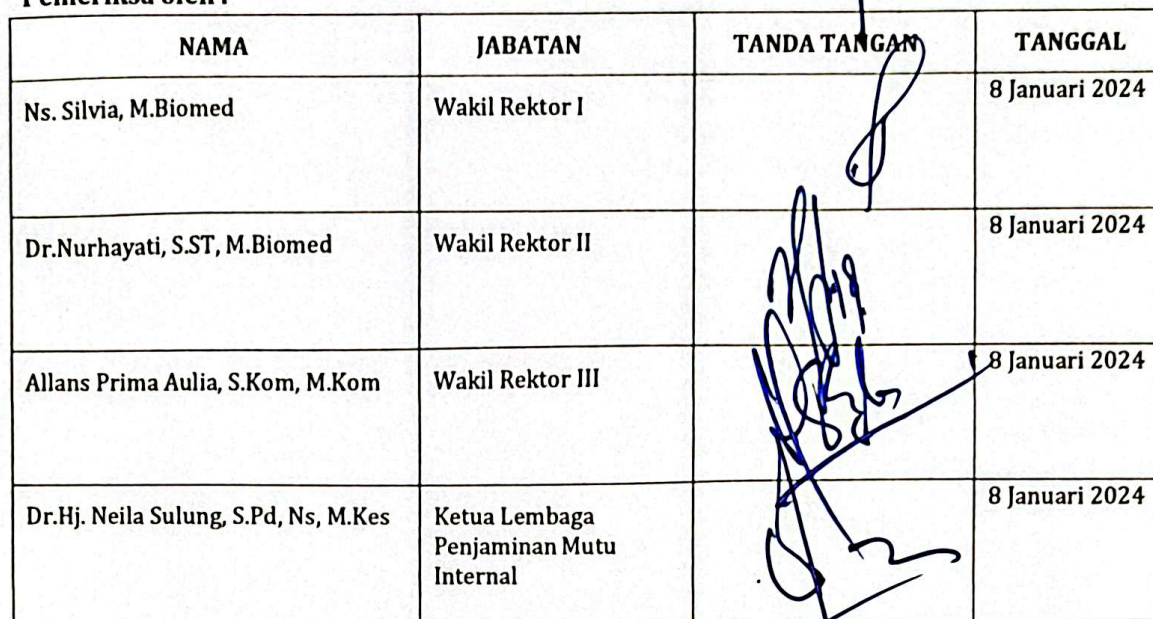 Pemeriksa oleh :
NAMA JABATAN TANDA TANGAN TANGGAL
Ns. Silvia, M.Biomed Wakil Rektor I 8 Januari 2024
Dr.Nurhayati, S.ST, M.Biomed Wakil Rektor II 8 Januari 2024
Allans Prima Aulia, S.Kom, M.Kom Wakil Rektor III 8 Januari 2024
Dr.Hj. Neila Sulung, S.Pd, Ns, M.Kes Ketua Lembaga 8 Januari 2024
Penjaminan Mutu
Internal